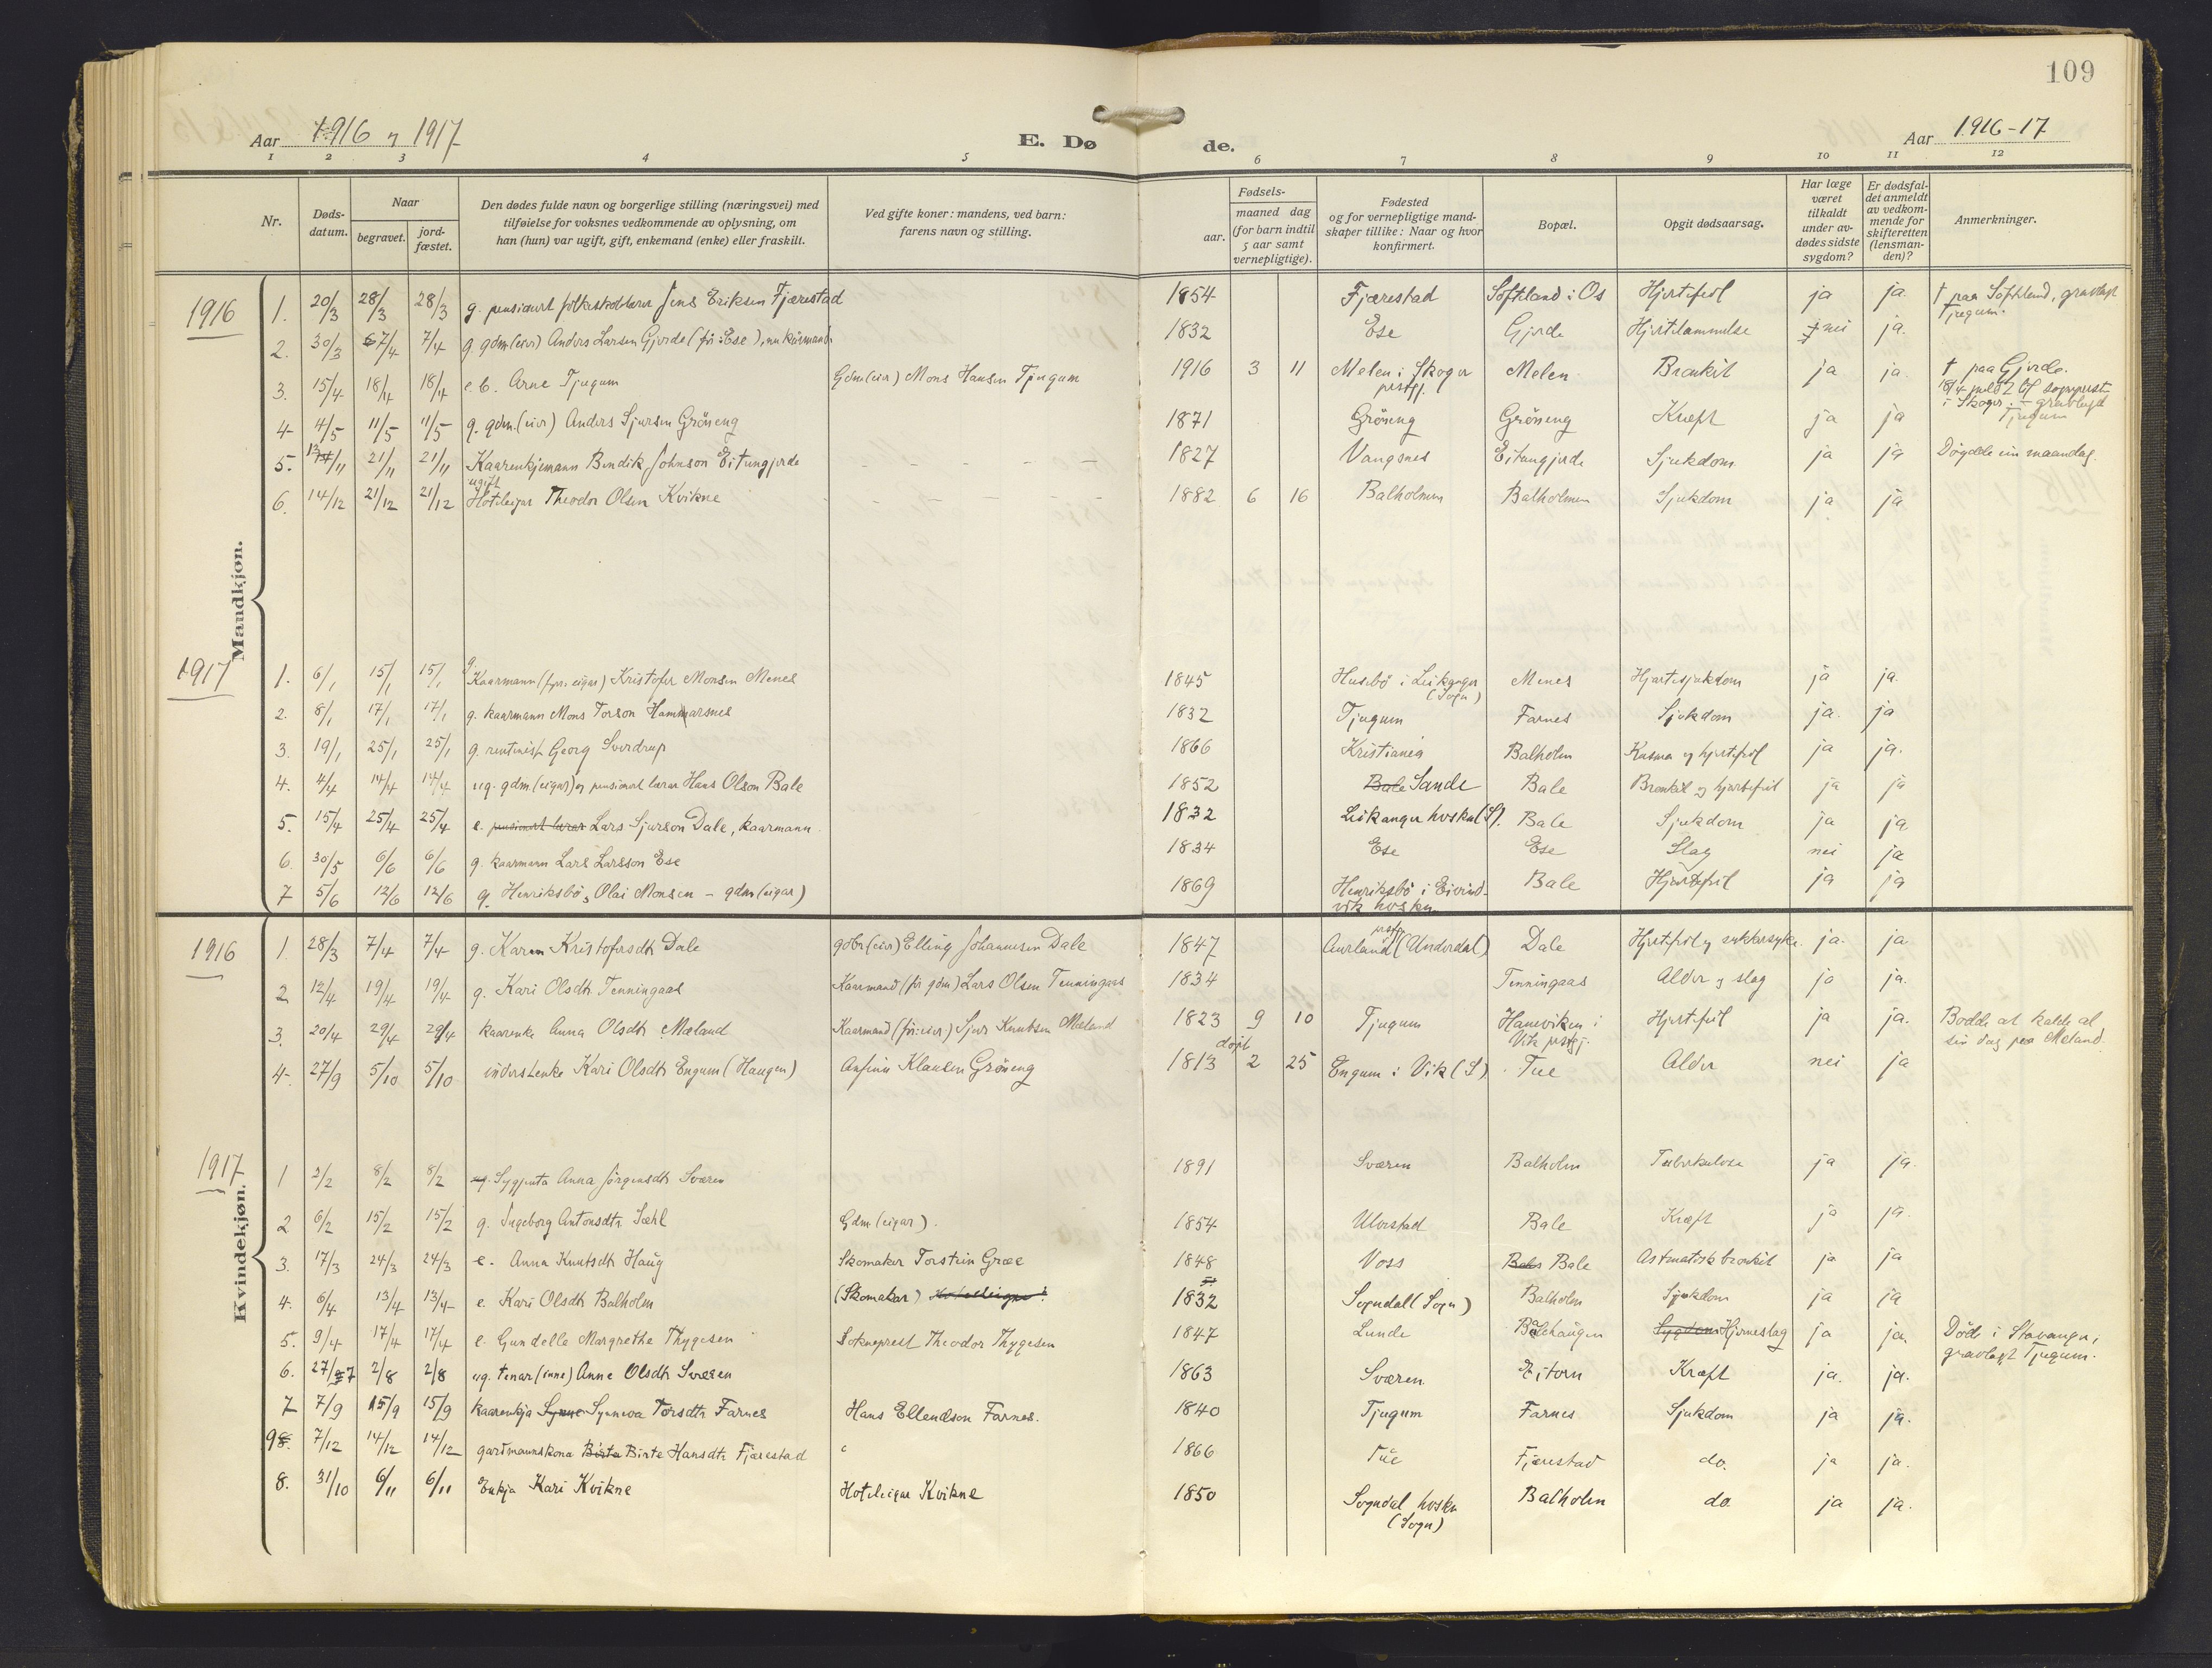 109
Aar 1916 og 1917
E. Dø de.
Aar 1916-17
1 2 3 4 5 6 7 8 9 10 11 12
Nr.
Døds-
datum.
Naar
begravet.
jord-
fæstet.
Den dødes fulde navn og borgerlige stilling (næringsvei) med
tilføielse for voksnes vedkommende av oplysning, om
han (hun) var ugift, gift, enkemand (enke) eller fraskilt.
Ved gifte koner: mandens, ved barn:
farens navn og stilling.
Fødsels-
aar.
maaned dag
(for barn indtil
5 aar samt
vernepligtige).
Fødested
og for vernepligtige mand-
skaper tillike: Naar og hvor
konfirmert.
Bopæl.
Opgit dødsaarsag.
Har læge
været
tilkaldt
under av-
dødes sidste
sygdom?
Er dødsfal-
det anmeldt
av vedkom-
mende for
skifteretten
(lensman-
den)?
Anmerkninger.
Mandkjøn.
1916
1. 20/3 28/3 28/3 g. pensionert folkeskolelærer Jens Eriksen Fjærestad 1854 Fjærestad Søfteland i Os Hjertefeil ja ja. † paa Søfteland, gravlagt
Tjugum.
2. 30/3 7/4 7/4 g. gdm (eier) Anders Larsen Gjerde (før: Ese), nu kårmand 1832 Ese Gjerde Hjertelammelse nei ja.
3. 15/4 18/4 18/4 e.b. Arne Tjugum Gdm (eier) Mons Hansen Tjugum 1916 3 11 Melen i Skoger
prstgj. Melen Bronkit ja ja † paa Gjerde.
i Skoger. - gravlagt
Tjugum
4. 4/5 11/5 11/5 g. gdm. (eier) Anders Sjursen Grøneng 1871 Grøneng Grøneng Kræft ja ja
5. 13/11 21/11 21/11 Kaarenkjemann Bendik Johnson Eitungjerde 1827 Vangsnes Eitungjerde Sjukdom ja ja Døydde ein maandag.
6. 14/12 21/12 21/12 ugift
Hoteleigar Theodor Olsen Kvikne 1882 6 16 Balholmen Balholmen Sjukdom ja ja
1917
1. 6/1 15/1 15/1 g. Kaarmann (fyrr eigar) Kristofer Monsen Menes 1845 Husebö i Leikanger
(Sogn) Menes Hjartesjukdom ja ja.
2. 8/1 17/1 17/1 g. kaarmann Mons Torson Hammarsnes 1832 Tjugum Farnes Sjukdom ja. ja
3. 19/1 25/1 25/1 g. rentenist Georg Sverdrup 1866 Kristiania Balholm Kasma og hjertefeil ja ja.
4. 4/4 14/4 14/4 ug. gdm (eigar) og pensionert lærar Hans Olson Bale 1852 Bale Sande Bale Bronkit og hjartefeil ja ja
5. 15/4 25/4 25/4 e. pensionert lærar Lars Sjurson Dale, kaarmann 1832 Leikanger hvskn (S). Bale Sjukdom ja ja
6. 30/5 6/6 6/6 g. kaarmann Lars Larsson Ese 1834 Ese Ese Slag nei ja
7 5/6 12/6 12/6 g. Henriksbö, Olai Monsen - gdm (eigar) 1869 Henriksbö i Eivind-
vik hvskn. Bale Hjertefeil ja ja
Kvindekjøn.
1916
1. 28/3 7/4 7/4 g. Karen Kristofersdtr Dale gdbr (eier) Elling Johannesen Dale 1847 Aurland prstgj (Underdal) Dale Hjertefeil og sukkersyke. ja. ja
2 12/4 19/4 19/4 g. Kari Olsdtr Tenningaas Kaarmand (før gdm) Lars Olsen Tenningaas 1834 Tenningaas Alder og slag ja ja.
3. 20/4 29/4 29/4 kaarenke Anna Olsdtr Mæland Kaarmand (før: eier) Sjur Knutsen Mæland 1823 9 10 Tjugum Hanevikin i
Vik prstgj. Hjertefeil ja ja. Bodde at kalde al
sin dag paa Mæland.
4. 27/9 5/10 5/10 inderstenke Kari Olsdtr Engum (Haugen) Anfinn Klausen Grøneng 1813 døpt 2 25 Engum i Vik (S) Tue Alder nei ja
1917
1 2/2 8/2 8/2 ug. Sygjenta Anna Jörgensdtr Sværen 1891 Sværen Balholm Tuberkulose ja ja.
2 6/2 15/2 15/2 g. Ingeborg Antonsdtr. Sæhl Gdm (eigar). 1854 Ulvestad Bale Kræft ja ja.
3. 17/3 24/3 24/3 e. Anna Knutsdtr Haug Skomaker Torstein Græe 1848 Voss Bale Astmatisk bronkit ja ja
4. 6/4 13/4 13/4 e. Kari Olsdtr Balholm (Skomakar) 1832 Sogndal (Sogn) Balholm Sjukdom ja ja
5. 9/4 17/4 17/4 e. Gundelle Margrethe Thygesen Sokneprest Theodor Thygesen 1847 Lunde Balehaugen Sygdom Hjerneslag ja ja. Död i Stavanger,
gravlagt Tjugum.
6. 27/7 2/8 2/8 ug. tenar (inne) Anne Olsdtr Sværen 1863 Sværen Eitorn Kræft ja. ja.
7 7/9 15/9 15/9 kaarenkja Synneva Torsdtr Farnes Hans Ellendson Farnes. 1840 Tjugum Farnes Sjukdom ja ja.
9 8. 7/12 14/12 14/12 gardmannskona Birta Birte Hansdtr Fjærestad 1866 Tue Fjærestad do. ja ja.
8. 31/10 6/11 6/11 Enkja Kari Kvikne Hoteleigar Kvikne 1850 Sogndal hvskn
(Sogn) Balholm do. ja ja.